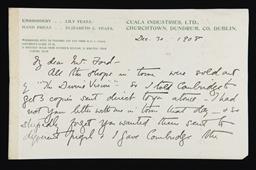 EMBROIDERY . . LILY YEATS.
HAND PRESS . . ELIZABETH C. YEATS.
CUALA INDUSTRIES, LTD.,
CHURCHTOWN, DUNDRUM, CO. DUBLIN.
Dec. 30 . 1908
My dear Mr Ford -
All the shops in town were sold out
of "The Divine Vision" - so I told Combridge to
get 3 copies sent direct to you alone - I had
not your letter with me in town that day - & so
stupidly forgot you wanted them sent to
different people - I gave Combridge the